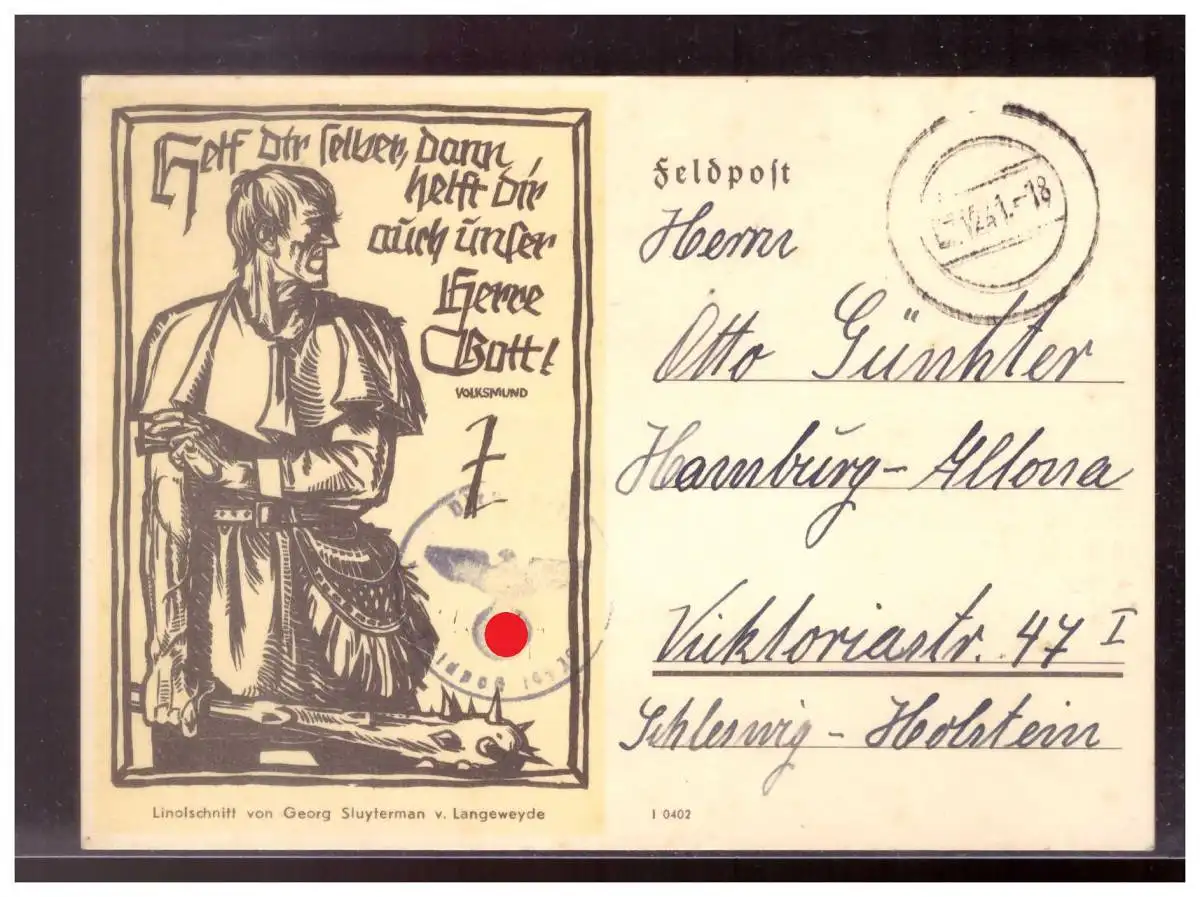 Helf dir selber, dann
helft dir
auch unser
Herre
Gott!
VOLKSMUND
Linolschnitt von Georg Sluyterman v. Langeweyde
Feldpost
12.41.-18
Herrn
Otto Günhter
Hamburg-Altona
Viktoriastr. 47 I
Schleswig-Holstein
I 0402